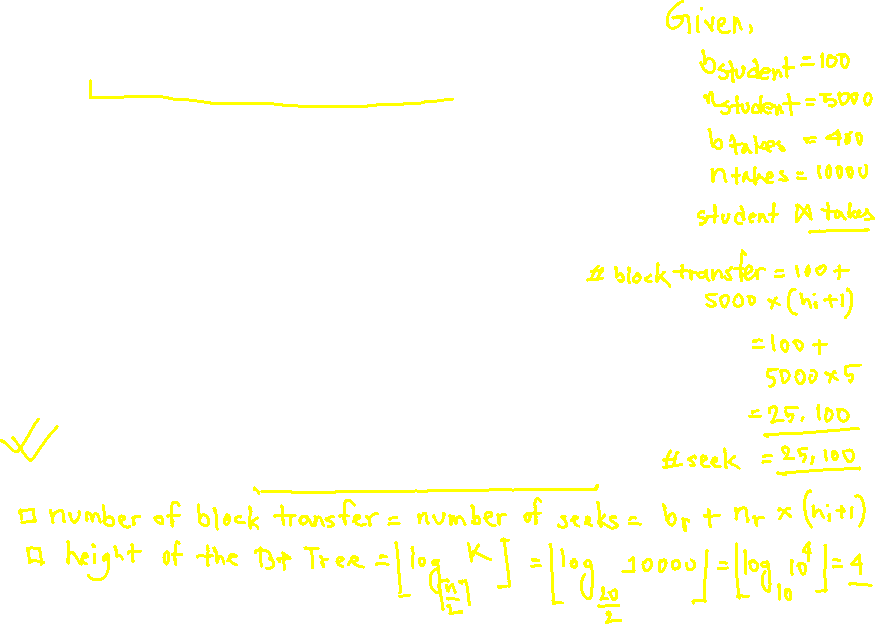 Given,
b_student = 100
n_student = 5000
b_takes = 400
n_takes = 10000
student ⋈ takes
# block transfer = 100 +
5000 × (hi + 1)
= 100 +
5000 × 5
= 25,100
# seek = 25,100
□ number of block transfer = number of seeks = b_r + n_r × (hi+1)
□ height of the B+ Tree = ⌊log_⌈n/2⌉ K⌋ = ⌊log_20/2 10000⌋ = ⌊log_10 10^4⌋ = 4